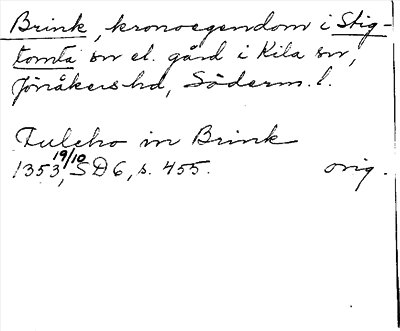 Brink, kronoegendom i Stig-
tomta sn el. gård i Kila sn,
Jönåkers hd, Söderm. l.
Fulcho in Brink
1353 19/10, SD 6, s. 455. orig.